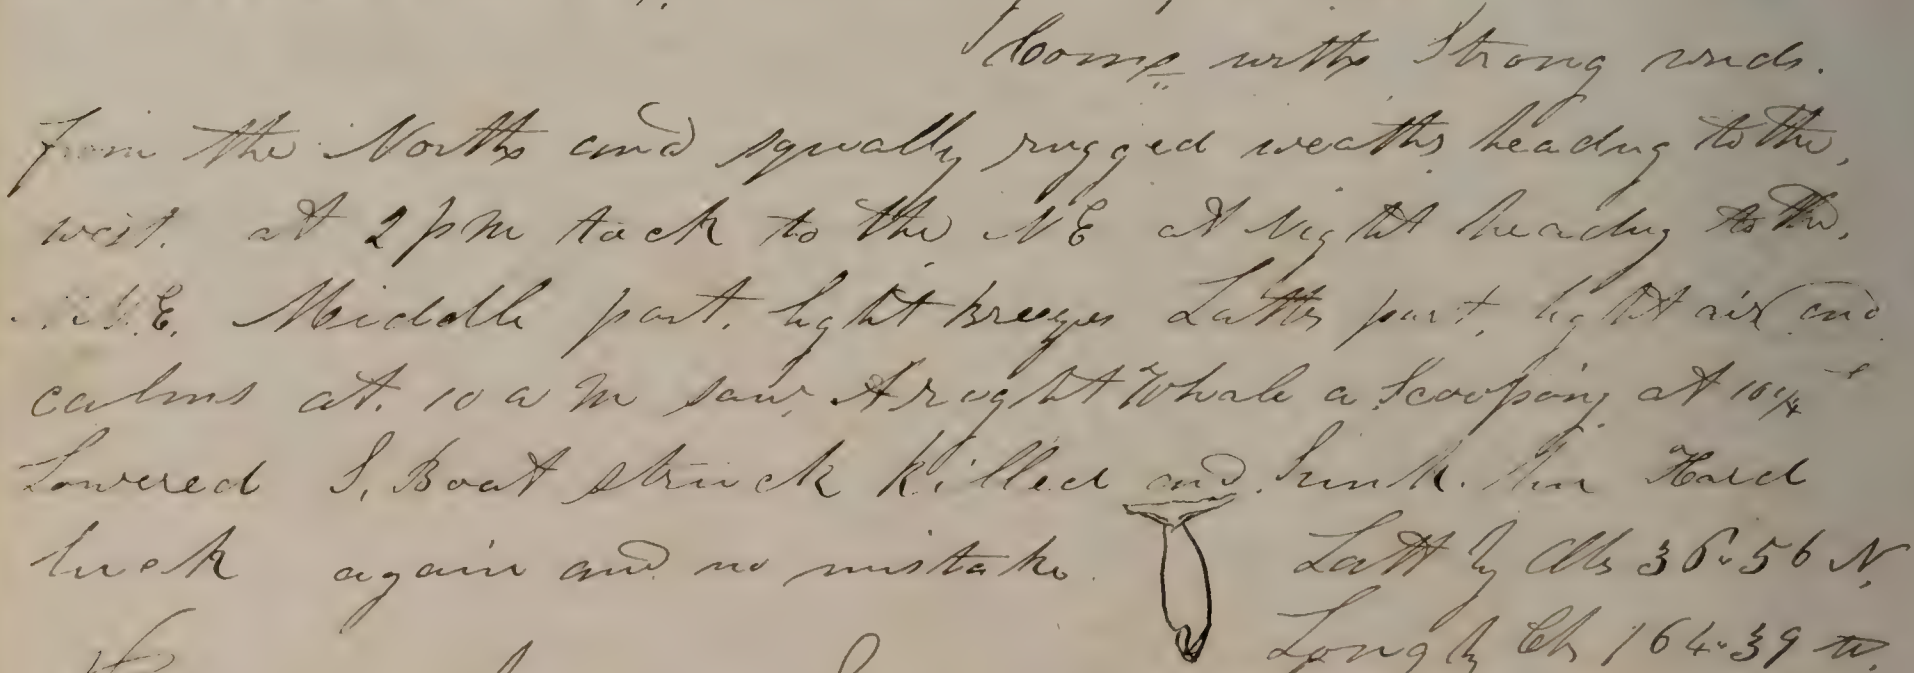 Come with Strong winds.
from the North and squally rugged weather heading to the,
west. at 2 pm tack to the NE at Night heading to the,
N.E. Middle part. light breezes Latter part, light air and
calms at. 10 a m saw, A right Whale a Scooping at 10¼
Lowered S, Boat struck killed and Sunk. Hard
luck again and no mistake. Latt by Obs 36"56 N,
Long by Ch 164"39 W.